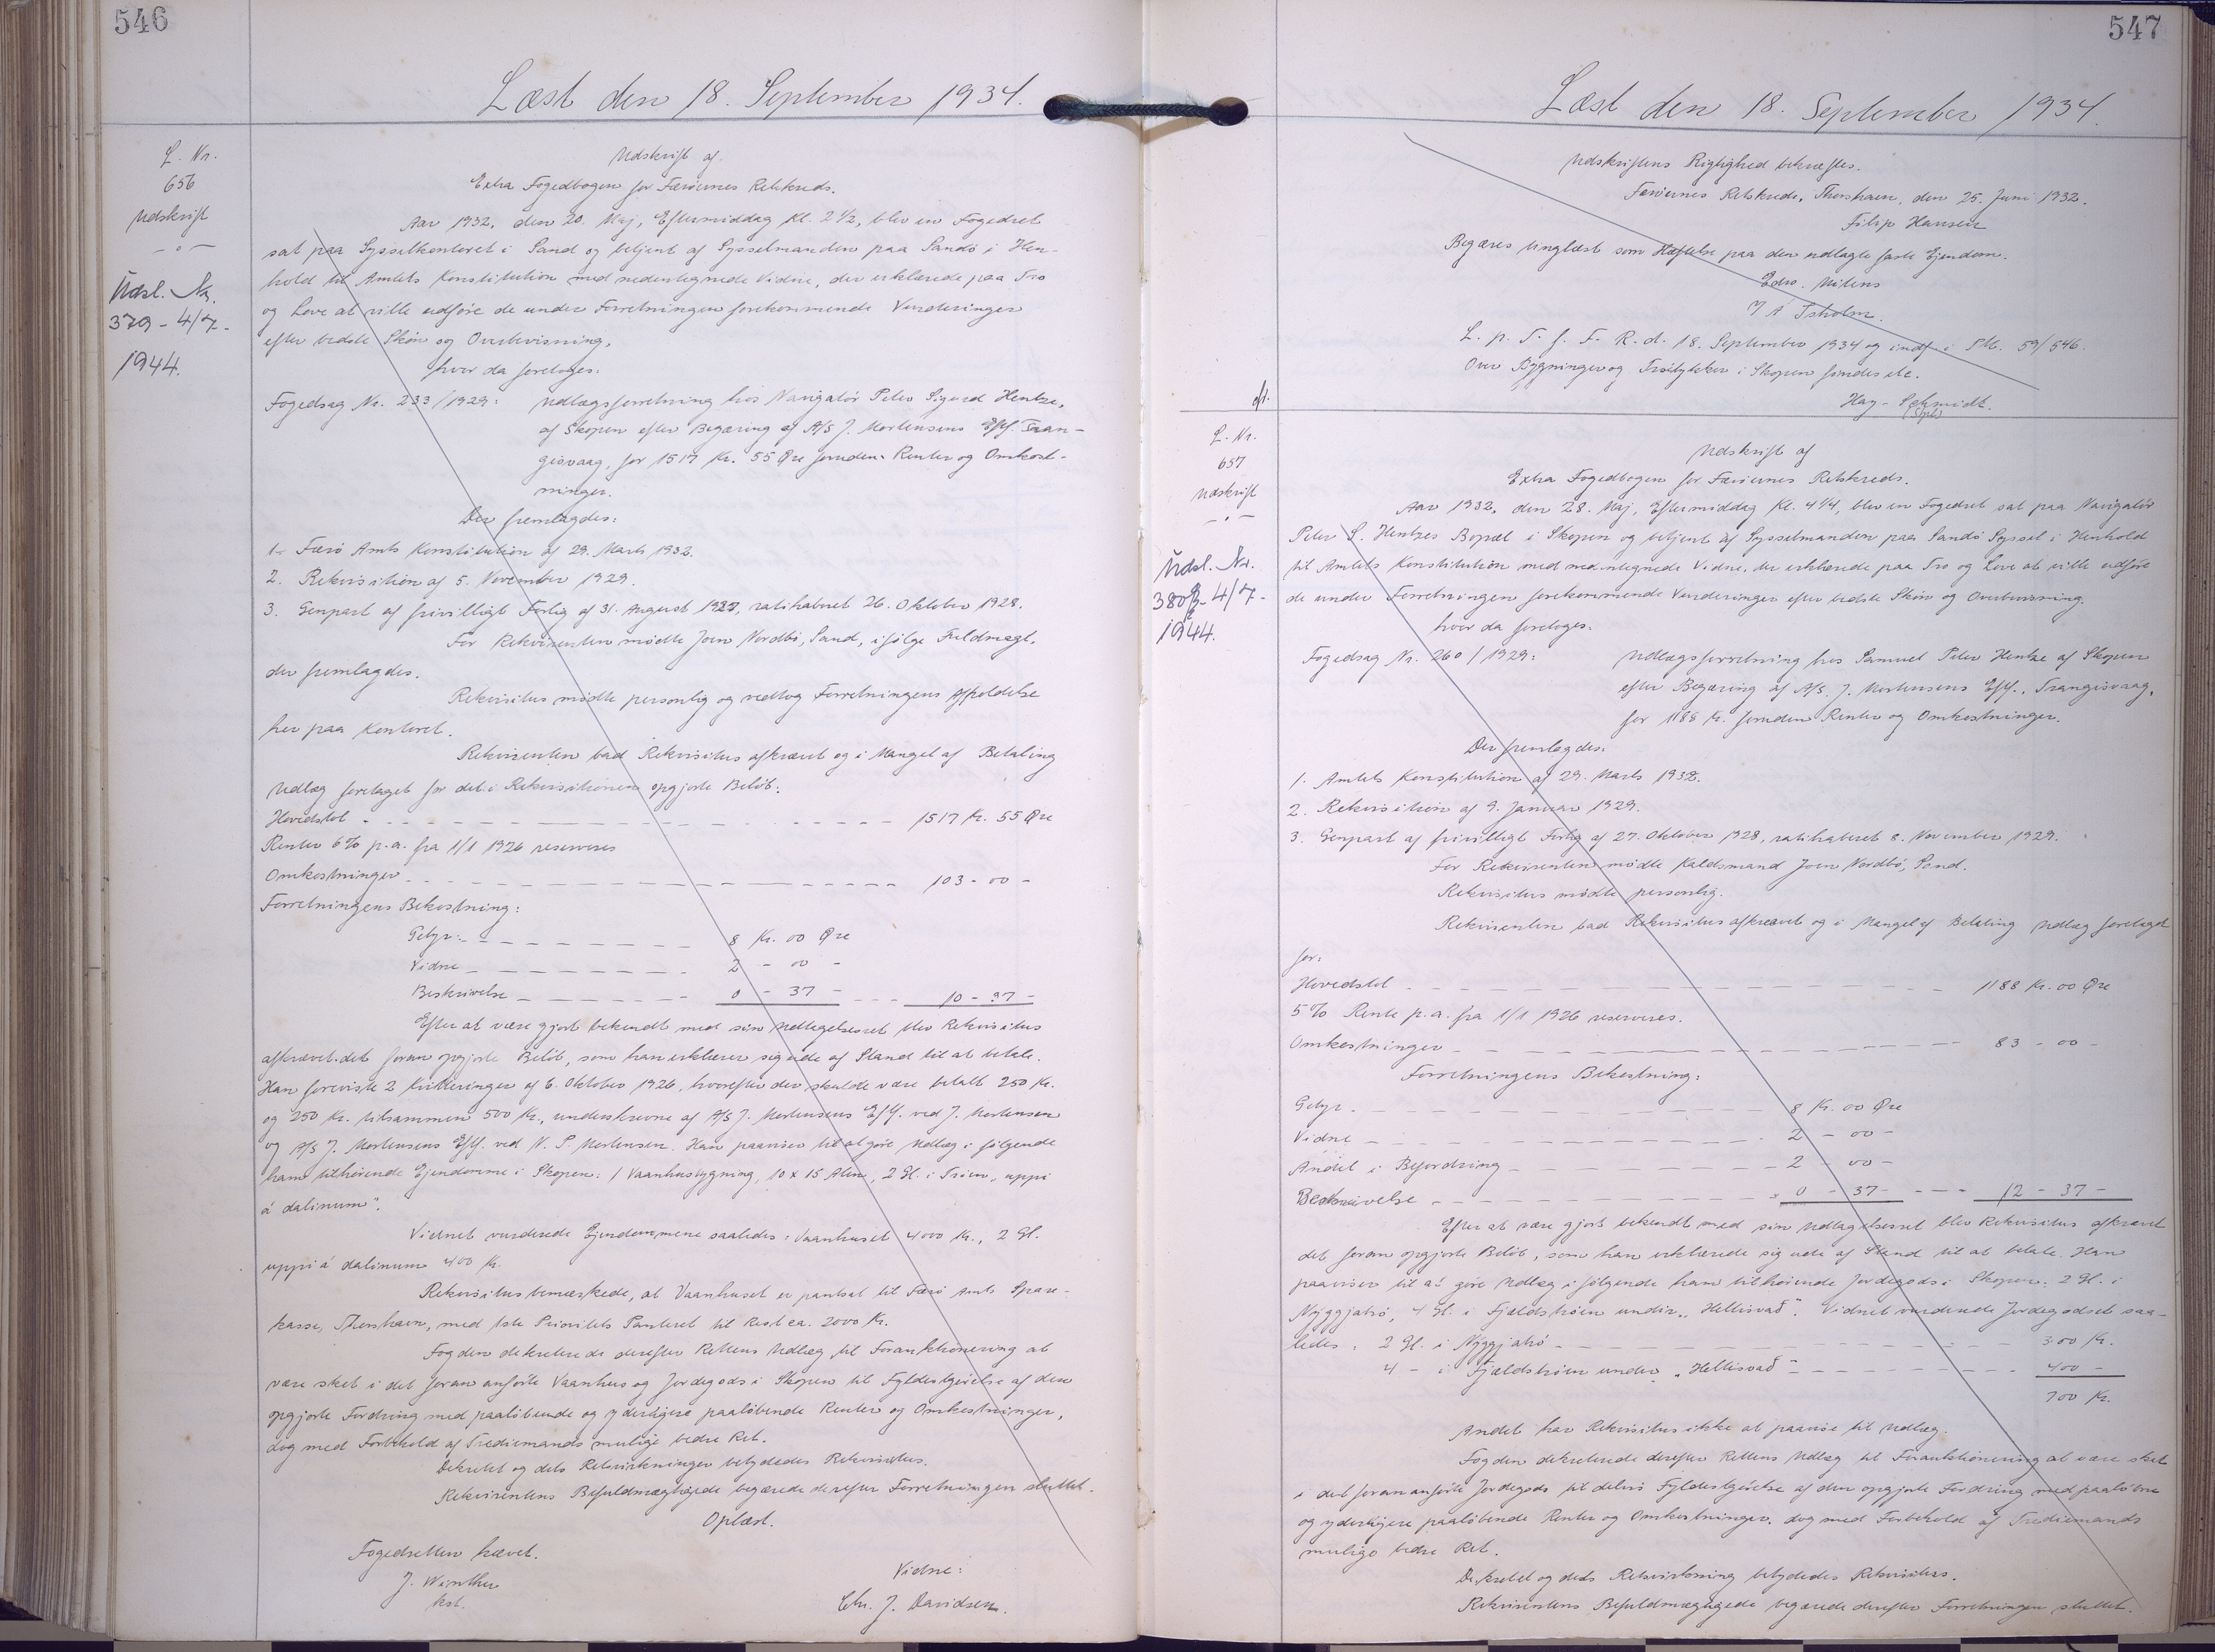 546
Læst den 18. September 1934.
L. Nr.
656
Udskrift
Udsl. Nr.
379 - 4/7 -
1944.
Udskrift af
Extra Fogedbogen for Færöernes Retskreds.
Aar 1932, den 20. Maj, Eftermiddag Kl. 2 1/2, blev en Fogedret
sat paa Sysselkontoret i Sand og betjent af Sysselmanden paa Sandö i Hen-
hold til Amtets Konstitution med nedentegnede Vidne, der erklærede paa Tro
og Love at ville udföre de under Forretningen forekommende Vurderinger
efter bedste Skön og Overbevisning,
hvor da foretoges:
Fogedsag Nr. 233/1929: Udlægsforretning hos Navigatör Peter Sigurd Hentze,
af Skopun efter Begæring af A/S J. Mortensens Eftf. Tran-
gisvaag, for 1517 Kr. 55 Øre foruden Renter og Omkost-
ninger.
Der fremlagdes:
1. Færö Amts Konstitution af 29. Marts 1932.
2. Rekvisition af 5. November 1929.
3. Genpart af frivilligt Forlig af 31. August 1928, ratihaberet 26. Oktober 1928.
For Rekvirenten mödte Joen Nordbö, Sand, ifölge Fuldmagt,
der fremlagdes.
Rekvisitus mödte personlig og vedtog Forretningens Afholdelse
her paa Kontoret.
Rekvirenten bad Rekvisitus afkrævet og i Mangel af Betaling
Udlæg foretaget for det i Rekvisitionen opgjorte Belöb:
Hovedstol - - - 1517 Kr. 55 Øre
Renter 6% p.a. fra 1/1 1926 reserveres
Omkostninger - - - 103 - 00 -
Forretningens Bekostning:
Gebyr: - - - 8 Kr. 00 Øre
Vidne - - - 2 - 00 -
Beskrivelse - - - 0 - 37 - - - 10 - 37 -
Efter at være gjort bekendt med sin Udtagelsesret blev Rekvisitus
afkrævet det foran opgjorte Belöb, som han erklærer sig ude af Stand til at betale.
Han foreviste 2 Kvitteringer af 6. Oktober 1926, hvorefter der skulde være betalt 250 Kr.
og 250 Kr. tilsammen 500 Kr., underskrevne af A/S J. Mortensens Eftf. ved J. Mortensen
og A/S J. Mortensens Eftf. ved N. P. Mortensen. Han paaviser til at göre Udlæg i fölgende
ham tilhörende Ejendomme i Skopun: 1 Vaanhusbygning, 10 x 15 Alen, 2 Gl. i Tröen „uppi
á dalinum".
Vidnet vurderede Ejendommene saaledes: Vaanhuset 4000 Kr., 2 Gl.
uppi á dalinum 400 Kr.
Rekvisitus bemærkede, at Vaanhuset er pantsat til Færö Amts Spare-
kasse, Thorshavn, med 1ste Prioritets Panteret til Rest ca. 2000 Kr.
Fogden dekreterede derefter Rettens Udlæg til Forauktionering at
være sket i det foran anförte Vaanhus og Jordegods i Skopun til Fyldestgörelse af den
opgjorte Fordring med paalöbende og yderligere paalöbende Renter og Omkostninger,
dog med Forbehold af Trediemands mulige bedre Ret.
Dekretet og dets Retsvirkninger betydedes Rekvisitus.
Rekvirentens Befuldmægtigede begærede derefter Forretningen sluttet.
Oplæst.
Fogedretten hævet.
J. Winther
kst.
Vidne:
Chr. J. Davidsen.
547
Læst den 18. September 1934.
Udskriftens Rigtighed bekræftes.
Færöernes Retskreds, Thorshavn, den 25. Juni 1932.
Filip Hansen
Begæres tinglæst som Hæftelse paa den udlagte faste Ejendom.
Edw. Mitens
L. p. T. f. F. R. d. 18. September 1934 og indf. i Pk. 59/546.
Over Bygninger og Tröstykker i Skopun findes etc.
Hag-Schmidt.
(Sgn)
afs.
L. Nr.
657
Udskrift
Udsl. Nr.
380 - 4/7 -
1944.
Udskrift af
Extra Fogedbogen for Færöernes Retskreds.
Aar 1932, den 28. Maj, Eftermiddag Kl. 4 1/4, blev en Fogedret sat paa Navigatör
Peter S. Hentzes Bopæl i Skopun og betjent af Sysselmanden paa Sandö Syssel i Henhold
til Amtets Konstitution med nedentegnede Vidne, der erklærede paa Tro og Love at ville udföre
de under Forretningen forekommende Vurderinger efter bedste Skön og Overbevisning,
hvor da foretoges:
Fogedsag Nr. 260/1929: Udlægsforretning hos Samuel Peter Hentze af Skopun
efter Begæring af A/S. J. Mortensens Eftf., Trangisvaag,
for 1188 Kr. foruden Renter og Omkostninger.
Der fremlagdes:
1. Amtets Konstitution af 29. Marts 1932.
2. Rekvisition af 9. Januar 1929.
3. Genpart af frivilligt Forlig af 27. Oktober 1928, ratihaberet 8. November 1929.
For Rekvirenten mödte Kaldsmand Joen Nordbö, Sand.
Rekvisitus mödte personlig.
Rekvirenten bad Rekvisitus afkrævet og i Mangel af Betaling Udlæg foretaget
for:
Hovedstol - - - 1188 Kr. 00 Øre
5% Rente p.a. fra 1/1 1926 reserveres.
Omkostninger - - - 83 - 00 -
Forretningens Bekostning:
Gebyr - - - 8 Kr. 00 Øre
Vidne - - - 2 - 00 -
Andel i Befordring - - - 2 - 00 -
Beskrivelse - - - 0 - 37 - - - 12 - 37 -
Efter at være gjort bekendt med sin Udtagelsesret blev Rekvisitus afkrævet
det foran opgjorte Belöb, som han erklærede sig ude af Stand til at betale. Han
paaviser til at göre Udlæg i fölgende ham tilhörende Jordegods i Skopun: 2 Gl. i
Nýggjatró, 4 Gl. i Fjældströen undir „Hellisvað". Vidnet vurderede Jordegodset saa-
ledes: 2 Gl. i Nýggjatró - - - 300 Kr.
4 - i Fjældströen under „Hellisvað" - - - 400 -
700 Kr.
Andet har Rekvisitus ikke at paavise til Udlæg.
Fogden dekreterede derefter Rettens Udlæg til Forauktionering at være sket
i det foran anförte Jordegods til delvis Fyldestgörelse af den opgjorte Fordring med paalöbne
og yderligere paalöbende Renter og Omkostninger, dog med Forbehold af Trediemands
mulige bedre Ret.
Dekretet og dets Retsvirkning betydedes Rekvisitus.
Rekvirentens Befuldmægtigede begærede derefter Forretningen sluttet.